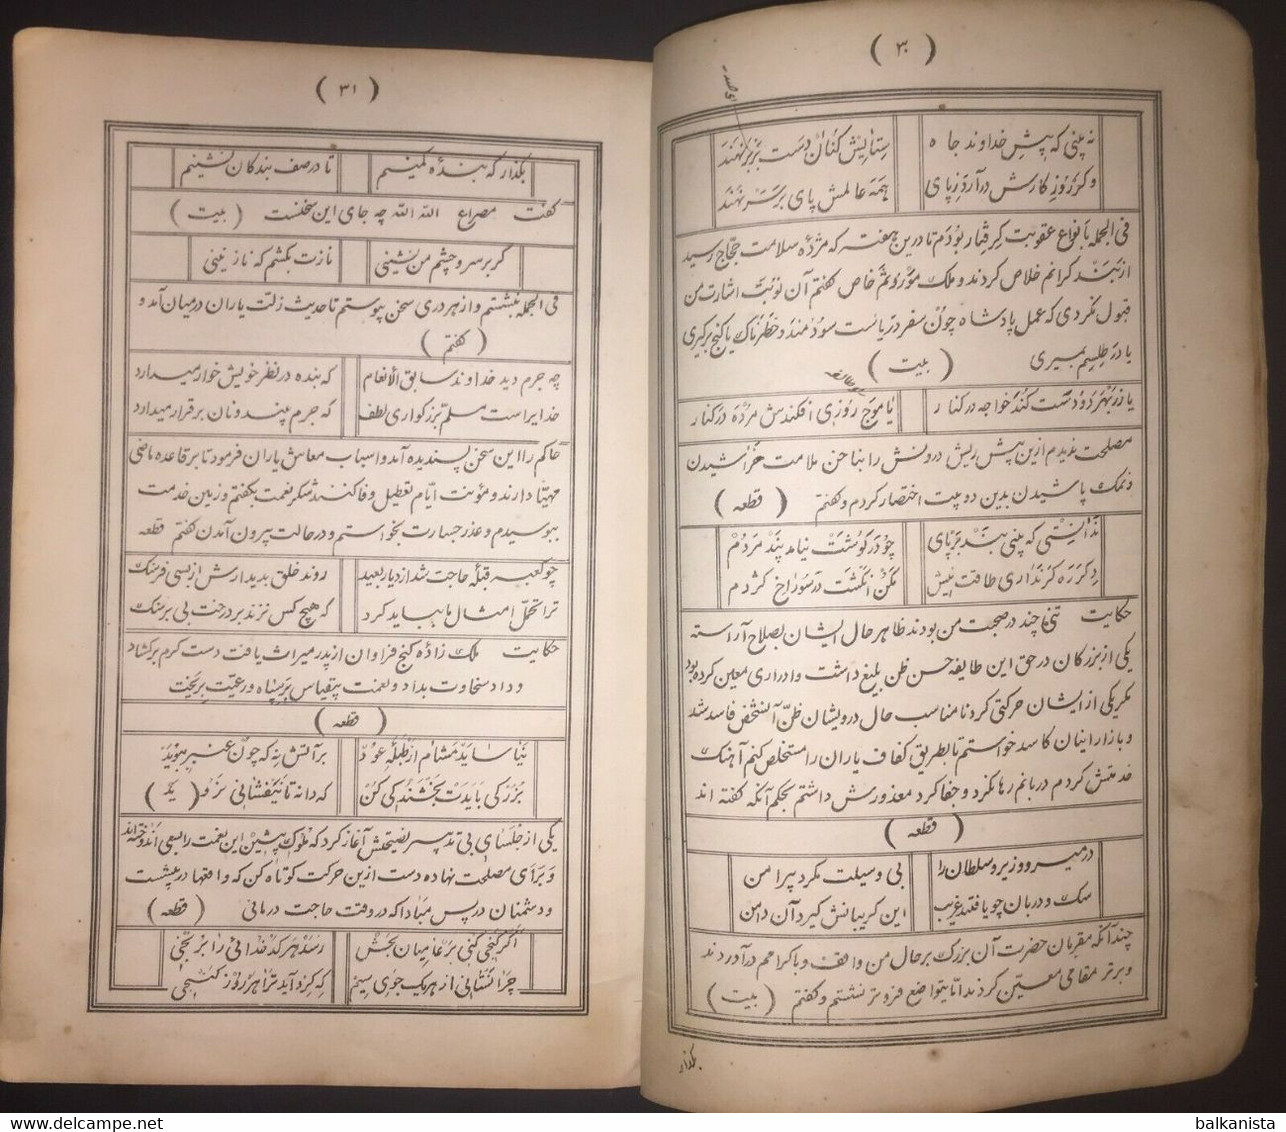 ( ۳۰ )
نه بینی که پیش خداوند جاه ستایش کنان دست بر بر نهند
وگر روزگارش درآرد ز پای همه عالمش پای بر سر نهند
فی الجمله بانواع عقوبت گرفتار بودم تا درین هفته که مژدهٔ سلامت حجاج رسید
از بند گرانم خلاص کردند و ملک موروثم خاص گفتم آن نوبت اشارت من
قبول نکردی که عمل پادشاه چون سفر دریاست سودمند و خطرناک یا گنج برگیری
یا در طلسم بمیری ( بیت )
یا زر بهر دو دست کند خواجه در کنار یا موج روزی افکندش مرده در کنار
مصلحت ندیدم ازین پیش ریش درونش را بناخن ملامت خراشیدن
و نمک پاشیدن بدین دو بیت اختصار کردم و گفتم ( قطعه )
ندانستی که بینی بند بر پای چو در گوشت نیامد پند مردم
دگر ره گر نداری طاقت نیش مکن انگشت در سوراخ کژدم
حکایت تنی چند در صحبت من بودند ظاهر حال ایشان بصلاح آراسته
یکی از بزرگان در حق این طایفه حسن ظن بلیغ داشت و ادراری معین کرده بود
مگر یکی از ایشان حرکتی کرد نامناسب حال درویشان ظن آنشخص فاسد شد
و بازار اینان کاسد خواستم تا بطریق کفاف یاران را مستخلص کنم آهنگ
خدمتش کردم دربانم رها نکرد و جفا کرد معذورش داشتم بحکم آنکه گفته اند
( قطعه )
در میر و وزیر و سلطان را بی وسیلت مگرد پیرامن
سگ و دربان چو یافتند غریب این گریبانش گیرد آن دامن
چندانکه مقربان حضرت آن بزرگ بر حال من واقف و باکرام درآوردند
و برتر مقامی معین کردند اما بتواضع فروتر نشستم و گفتم ( بیت )
بگذار
( ۳۱ )
بگذار که بندهٔ کمینم تا در صف بندگان نشینم
گفت مصراع الله الله چه جای این سخنست ( بیت )
گر بر سر و چشم من نشینی نازت بکشم که نازنینی
فی الجمله بنشستم و از هر دری سخن پیوستم تا حدیث زلت یاران درمیان آمد و
( گفتم )
چه جرم دید خداوند سابق الانعام که بنده در نظر خویش خوار میدارد
خدایراست مسلم بزرگواری لطف که جرم بیند و نان برقرار میدارد
حاکم را این سخن پسندیده آمد و اسباب معاش یاران فرمود تا بر قاعده ماضی
مهیا دارند و مؤنت ایام تعطیل وفا کنند شکر نعمت بگفتم و زمین خدمت
ببوسیدم و عذر جسارت بخواستم و در حالت بیرون آمدن گفتم قطعه
چو کعبه قبلهٔ حاجت شد از دیار بعید روند خلق بدیدارش از بسی فرسنگ
ترا تحمل امثال ما بباید کرد که هیچ کس نزند بر درخت بی بر سنگ
حکایت ملک زاده گنج فراوان از پدر میراث یافت دست کرم برگشاد
و داد سخاوت بداد و نعمت بیقیاس بر سپاه و رعیت بریخت
( قطعه )
نیاساید مشام از طبلهٔ عود بر آتش نه که چون عنبر ببوید
بزرگی بایدت بخشندگی کن که دانه تا نیفشانی نروید
یکی از جلسای بی تدبیر نصیحتش آغاز کرد که ملوک پیشین این نعمت را بسعی اندوخته‌اند
و برای مصلحت نهاده دست ازین حرکت کوتاه کن که واقعها در پیشست
و دشمنان در پس مبادا که در وقت حاجت درمانی ( قطعه )
اگر گنجی کنی بر عامیان بخش رسد هر کدخدائی را برنجی
چرا نستانی از هر یک جوی سیم که گرد آید ترا هر روز گنجی
balkanista